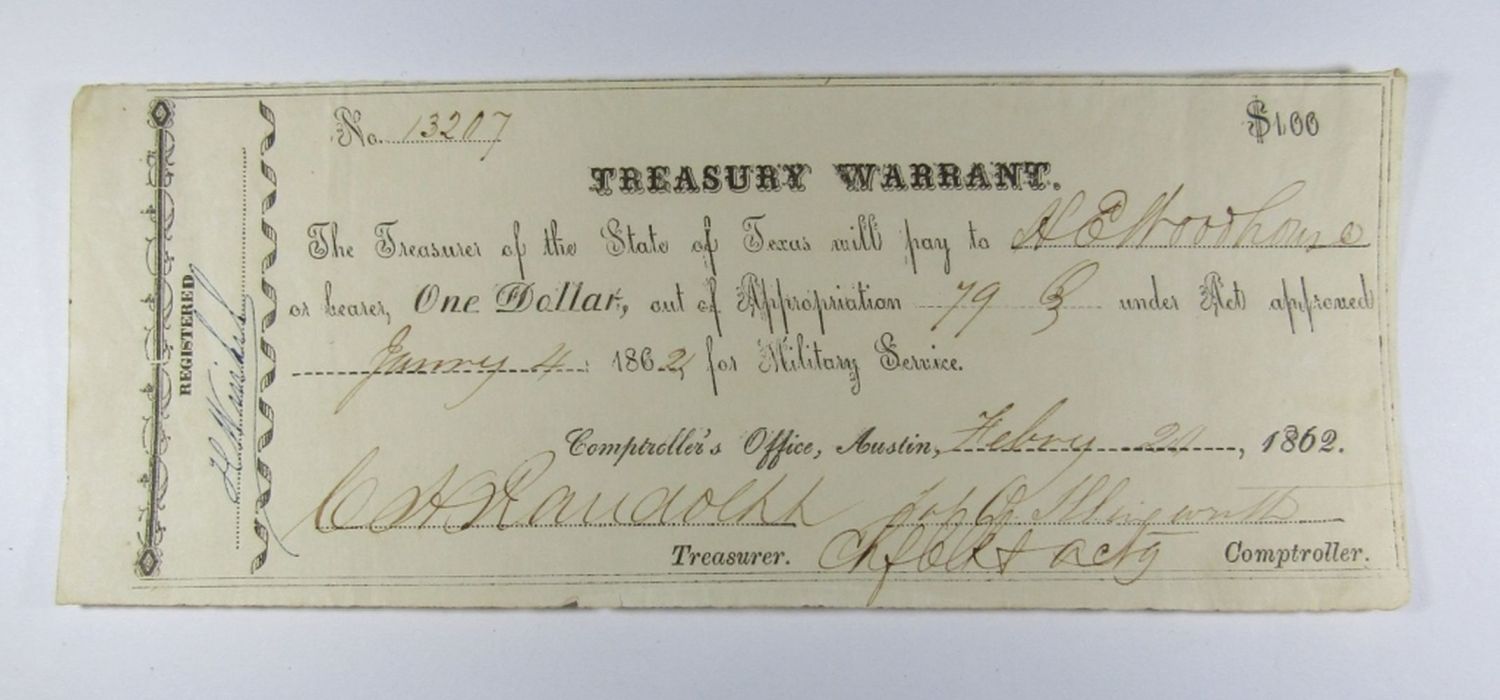 No. 13207 $1.00
TREASURY WARRANT.
The Treasurer of the State of Texas will pay to H E Woodhouse
or bearer, One Dollar, out of Appropriation 79 under Act approved
Janry 4 1862 for Military Service.
Comptroller's Office, Austin, Febry 21, 1862.
C H Randolph
Treasurer. Chf Clk & actg Comptroller.
REGISTERED